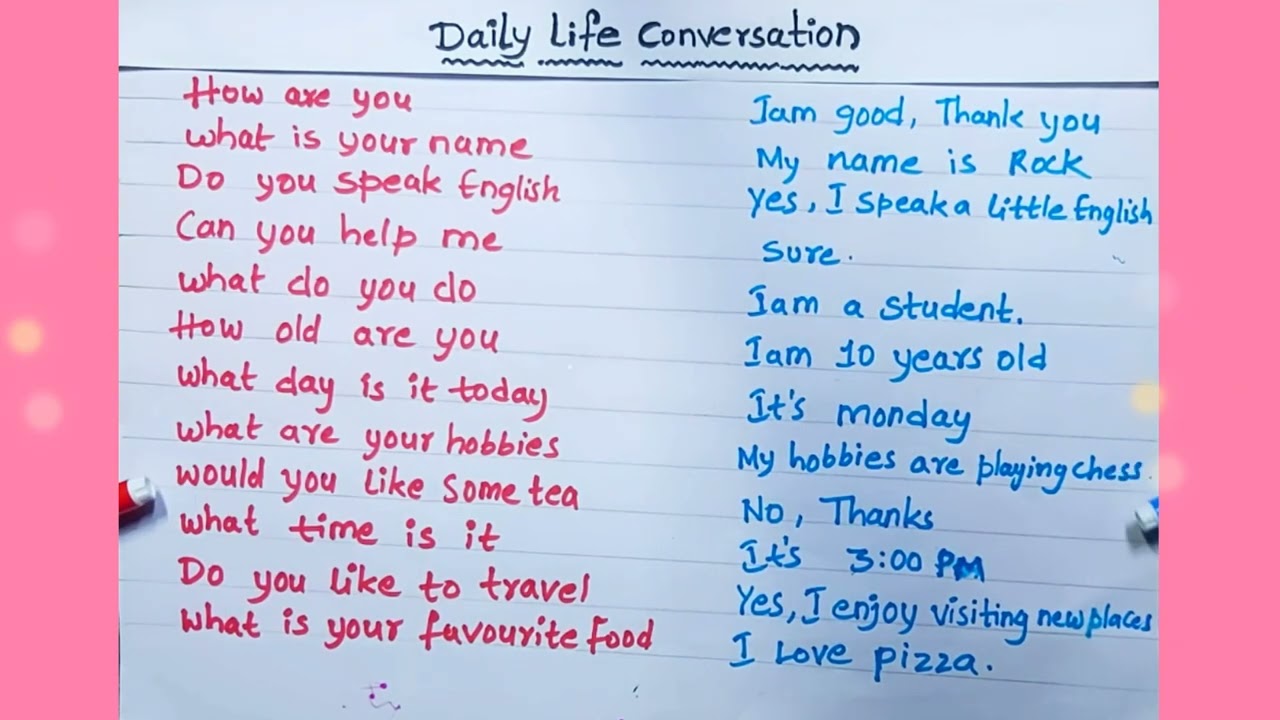 Daily Life Conversation
How are you
Iam good, Thank you
what is your name
My name is Rock
Do you speak English
Yes, I speak a little English
Can you help me
Sure.
what do you do
Iam a student.
How old are you
Iam 10 years old
what day is it today
It's monday
what are your hobbies
My hobbies are playing chess.
would you like some tea
No, Thanks
what time is it
It's 3:00 PM
Do you like to travel
Yes, I enjoy visiting new places
what is your favourite food
I Love pizza.